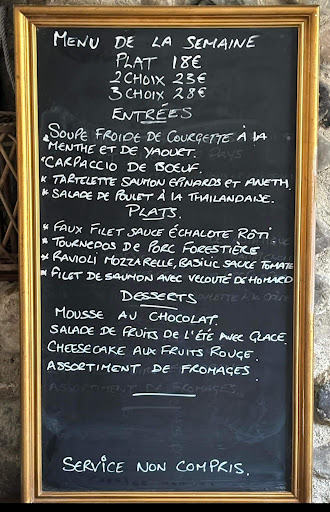 MENU DE LA SEMAINE
PLAT 18€
2 CHOIX 23€
3 CHOIX 28€
ENTRÉES
* SOUPE FROIDE DE COURGETTE À LA
MENTHE ET DE YAOURT.
* CARPACCIO DE BOEUF.
* TARTELETTE SAUMON EPINARDS ET ANETH.
* SALADE DE POULET À LA THAILANDAISE.
PLATS.
* FAUX FILET SAUCE ÉCHALOTE RÔTI.
* TOURNEDOS DE PORC FORESTIÈRE
* RAVIOLI MOZZARELLE, BASILIC SAUCE TOMATE
* FILET DE SAUMON AVEC VELOUTÉ DE HOMARD
DESSERTS
MOUSSE AU CHOCOLAT.
SALADE DE FRUITS DE L'ÉTÉ AVEC GLACE.
CHEESECAKE AUX FRUITS ROUGE.
ASSORTIMENT DE FROMAGES.
ASSORTIMENT DE FROMAGES
SERVICE NON COMPRIS.